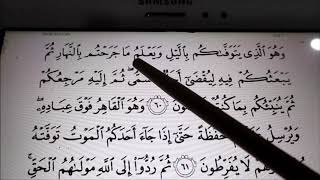 SAMSUNG
وَهُوَ الَّذِي يَتَوَفَّىٰكُم بِالَّيْلِ وَيَعْلَمُ مَا جَرَحْتُم بِالنَّهَارِ ثُمَّ
يَبْعَثُكُمْ فِيهِ لِيُقْضَىٰ أَجَلٌ مُّسَمًّى ثُمَّ إِلَيْهِ مَرْجِعُكُمْ
ثُمَّ يُنَبِّئُكُم بِمَا كُنتُمْ ٦٠ وَهُوَ الْقَاهِرُ فَوْقَ عِبَادِهِۦ
وَيُرْسِلُ حَفَظَةً حَتَّىٰ إِذَا جَاءَ أَحَدَكُمُ الْمَوْتُ تَوَفَّتْهُ
لَا يُفَرِّطُونَ ٦١ ثُمَّ رُدُّوا إِلَى اللَّهِ مَوْلَىٰهُمُ الْحَقِّ